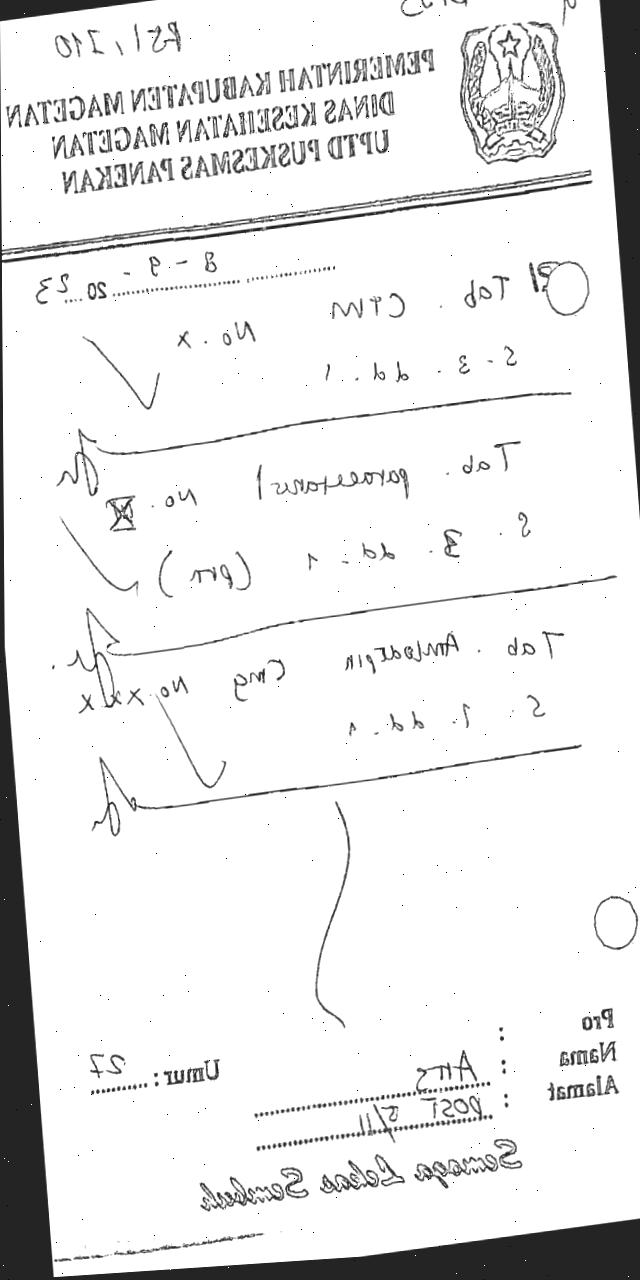 PEMERINTAH KABUPATEN MAGETAN
DINAS KESEHATAN MAGETAN
UPTD PUSKESMAS PANEKAN
8 - 9 - 20 23
R/ Tab. CTM No. X
S. 3. dd. 1
Tab. paracetamol No.
S. 3. dd. 1 (prn)
Tab. Amlodipin mg No. XXX
S. 1. dd. 1
Pro :
Nama : Umur : 27
Alamat : POST 5/11
Semoga Lekas Sembuh